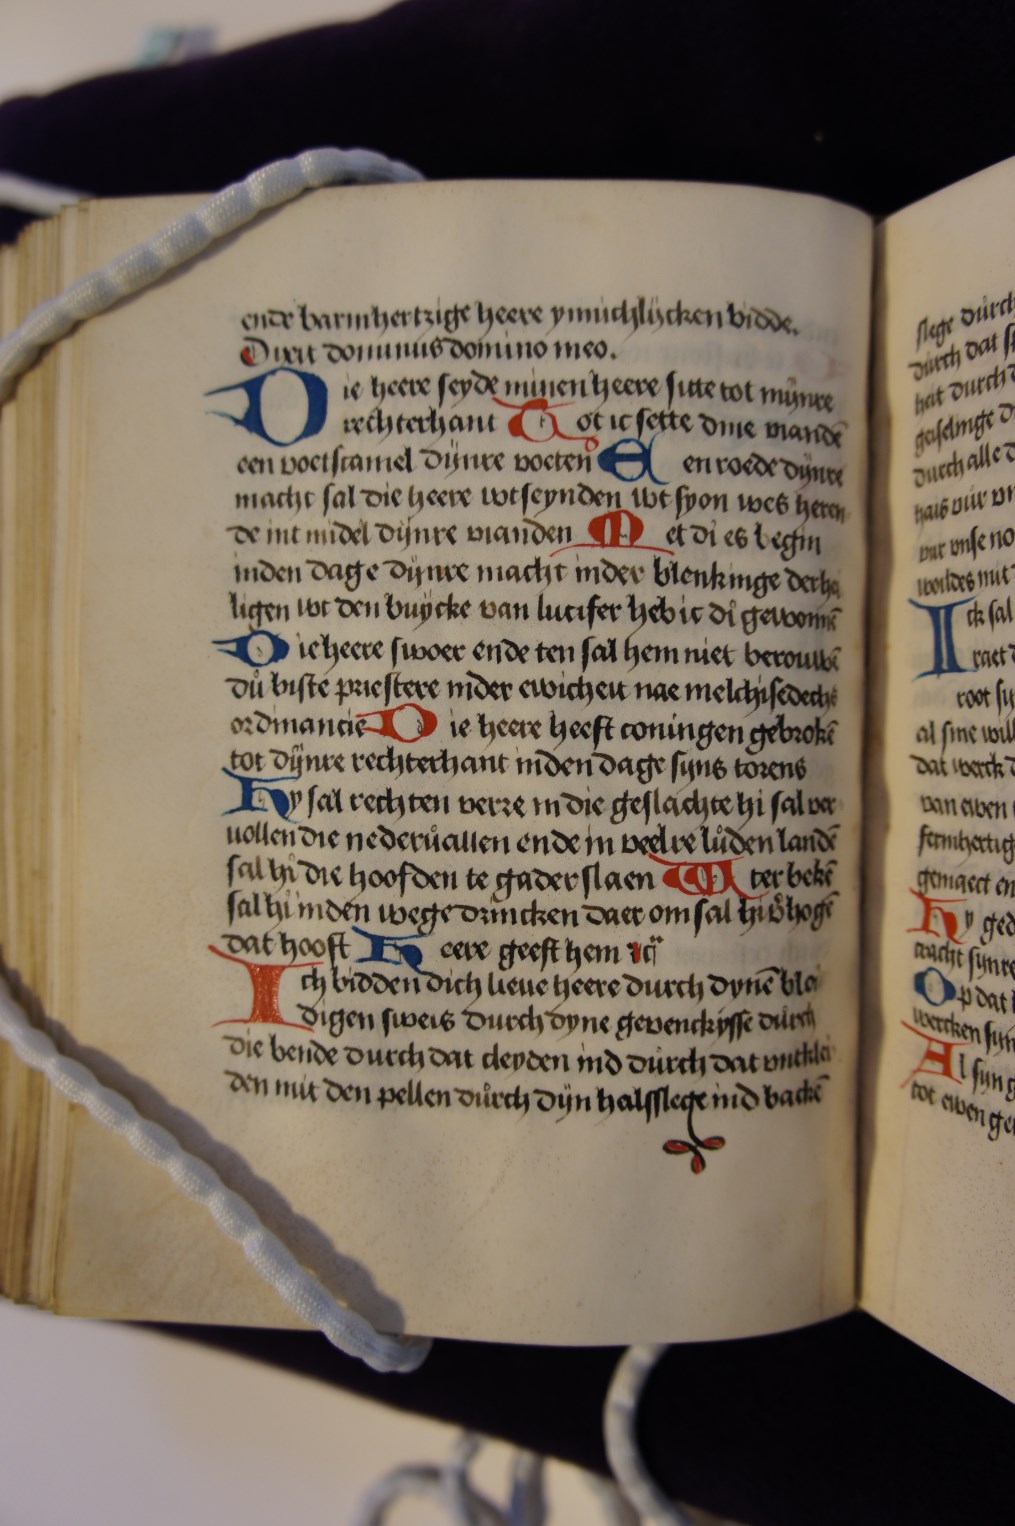 ende barmhertzige heere ynnichlijcken bidde.
Dixit dominus domino meo.
Die heere seyde minen heere sitte tot mijnre
rechterhant Tot ic sette dine viandē
een voetscamel dijnre voeten Een roede dijnre
macht sal die heere wtseynden wt syon wes heren
de int midel dijnre vianden Met di es begin
inden dage dijnre macht inder blenkinge der hei
ligen wt den buycke van lucifer heb ic di gewonnē
Die heere swoer ende ten sal hem niet berouwē
du biste priestere inder ewicheit nae melchisedechs
ordinancie Die heere heeft coningen gebrokē
tot dijnre rechterhant inden dage sijns torens
Hy sal rechten verre in die geslachte hi sal ver
vollen die nederuallen ende in veelre luden landē
sal hi die hoofden te gader slaen Wter bekē
sal hi inden wege drincken daer om sal hi vhogē
dat hooft Heere geeft hem
Ich bidden dich lieue heere durch dynē blo
digen sweis durch dyne gevencknysse durch
die bende durch dat cleyden ind durch dat
den mit den pellen durch dijn halsslege ind backē
slege durch
durch dat
heit durch
geiselinge
durch alle
wur vnse
Ick sal
raet
root
al sine
dat werck
van ewen
fermhertig
gemaect en
Hy ged
cracht synre
Op dat
wercken syn
Al syn g
tot ewen ge